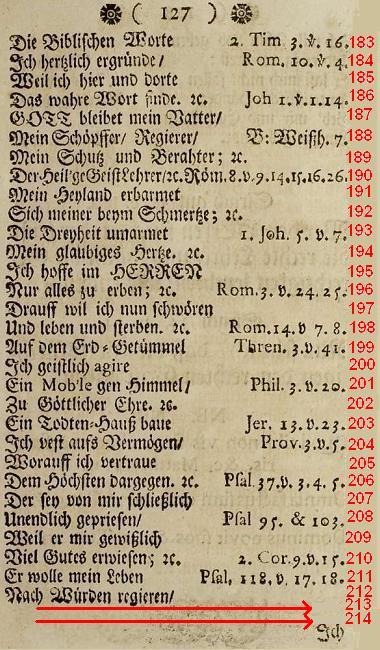 ( 127 )
Die Biblischen Worte 2. Tim. 3. v. 16. 183
Ich hertzlich ergründe/ Rom. 10. v. 4. 184
Weil ich hier und dorte 185
Das wahre Wort finde. ꝛc. Joh 1. v. 1. 14. 186
GOTT bleibet mein Vatter/ 187
Mein Schöpffer/ Regierer/ B: Weißh. 7. 188
Mein Schutz und Berahter; ꝛc. 189
Der Heil'ge Geist Lehrer/ ꝛc. Röm. 8. v. 9. 14. 15. 16. 26. 190
Mein Heyland erbarmet 191
Sich meiner beym Schmertze; ꝛc. 192
Die Dreyheit umarmet 1. Joh. 5. v. 7. 193
Mein glaubiges Hertze. ꝛc. 194
Ich hoffe im HERREN 195
Nur alles zu erben; ꝛc. Rom. 3. v. 24. 25. 196
Drauff wil ich nun schwören 197
Und leben und sterben. ꝛc. Rom. 14. v 7. 8. 198
Auf dem Erd-Getümmel Thren. 3. v. 41. 199
Ich geistlich agire 200
Ein Mob'le gen Himmel/ Phil. 3. v. 20. 201
Zu Göttlicher Ehre. ꝛc. 202
Ein Todten-Hauß baue Jer. 13. v. 23. 203
Ich vest aufs Vermögen/ Prov. 3. v. 5. 204
Worauff ich vertraue 205
Dem Höchsten dargegen. ꝛc. Psal. 37. v. 3. 4. 5. 206
Der sey von mir schließlich 207
Unendlich gepriesen/ Psal 95. & 103. 208
Weil er mir gewißlich 209
Viel Gutes erwiesen; ꝛc. 2. Cor. 9. v. 15. 210
Er wolle mein Leben Psal. 118. v. 17. 18. 211
Nach Würden regieren/ 212
213
214
Ich